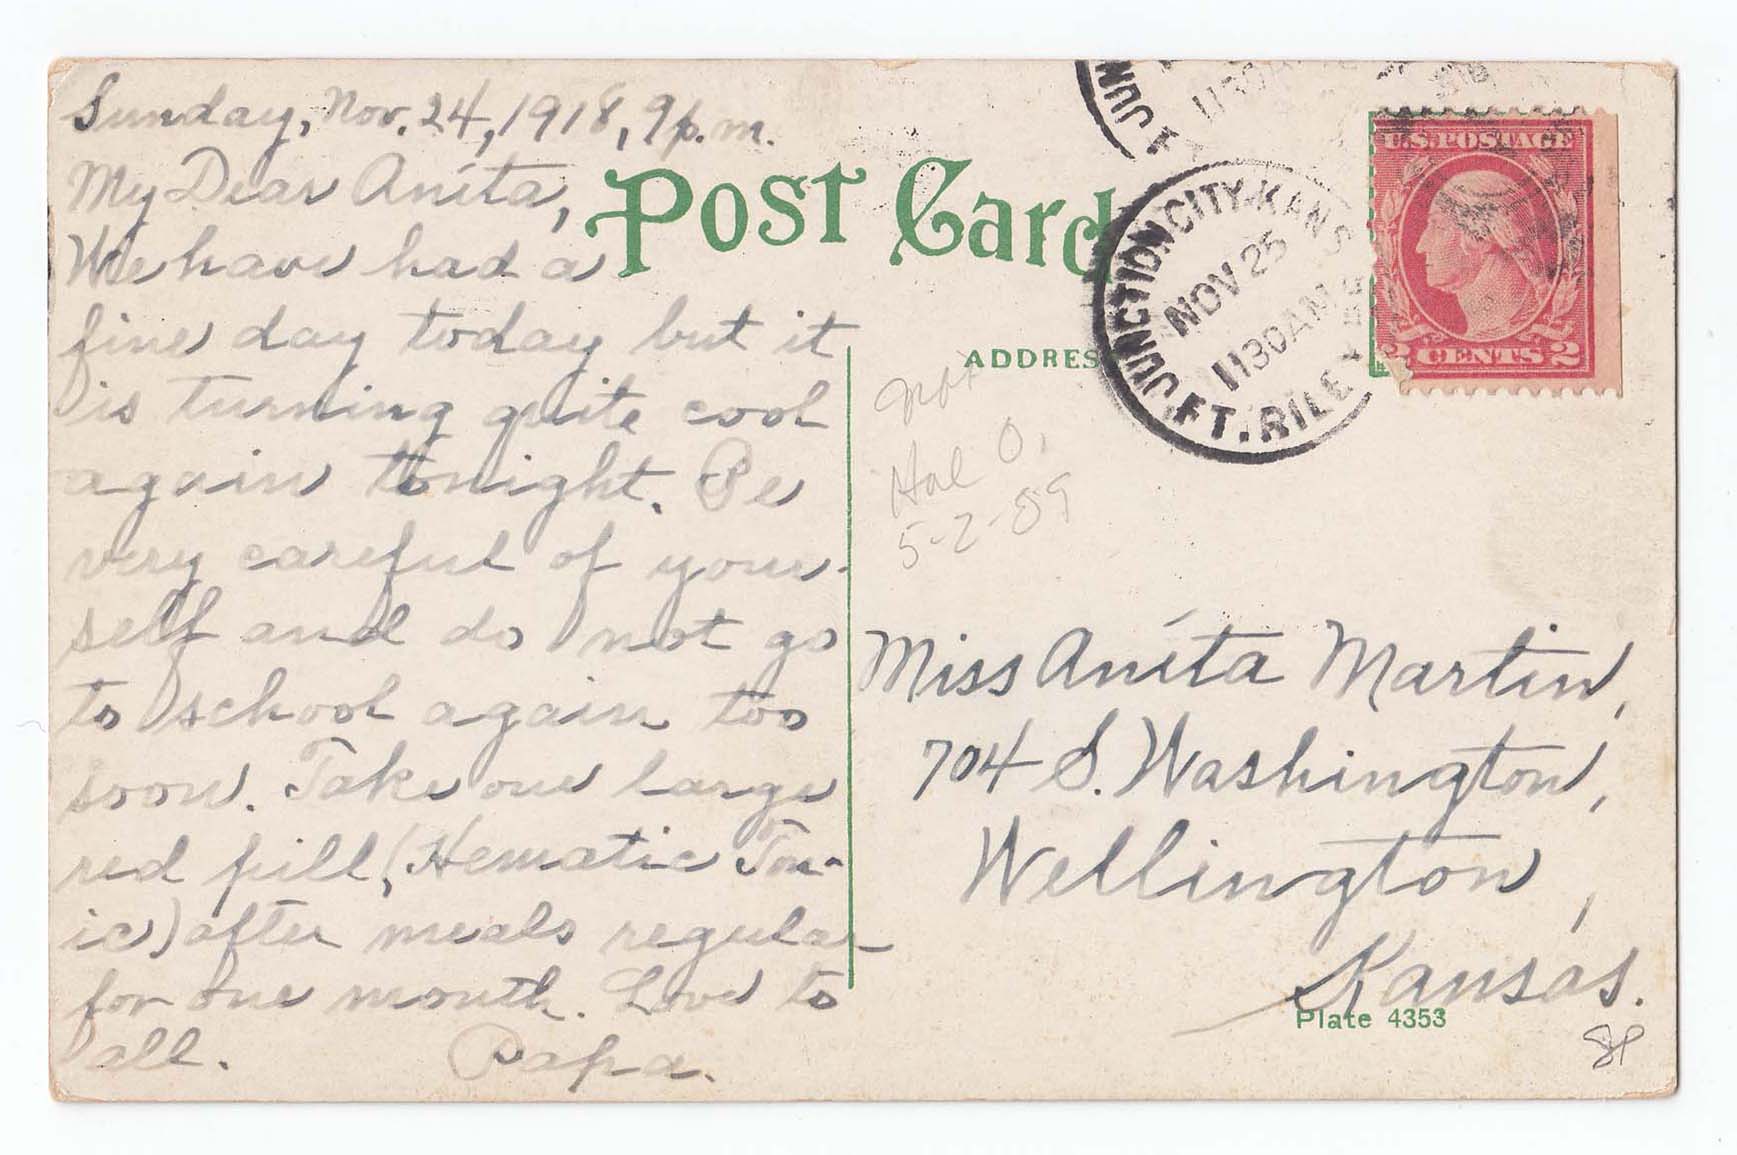 Sunday, Nov. 24, 1918, 9 p.m.
My Dear Anita,
We have had a
fine day today but it
is turning quite cool
again tonight. Be
very careful of your-
self and do not go
to school again too
soon. Take one large
red pill, (Hematic Ton-
ic) after meals regular
for one month. Love to
all. Papa.
POST CARD
ADDRES
JUN
1130A
JUNCTION CITY KANS
NOV 25
1130AM
FT. RILEY
U.S. POSTAGE
2 CENTS 2
Hal O,
5-2-89
Miss Anita Martin,
704 S. Washington,
Wellington,
Kansas.
Plate 4353